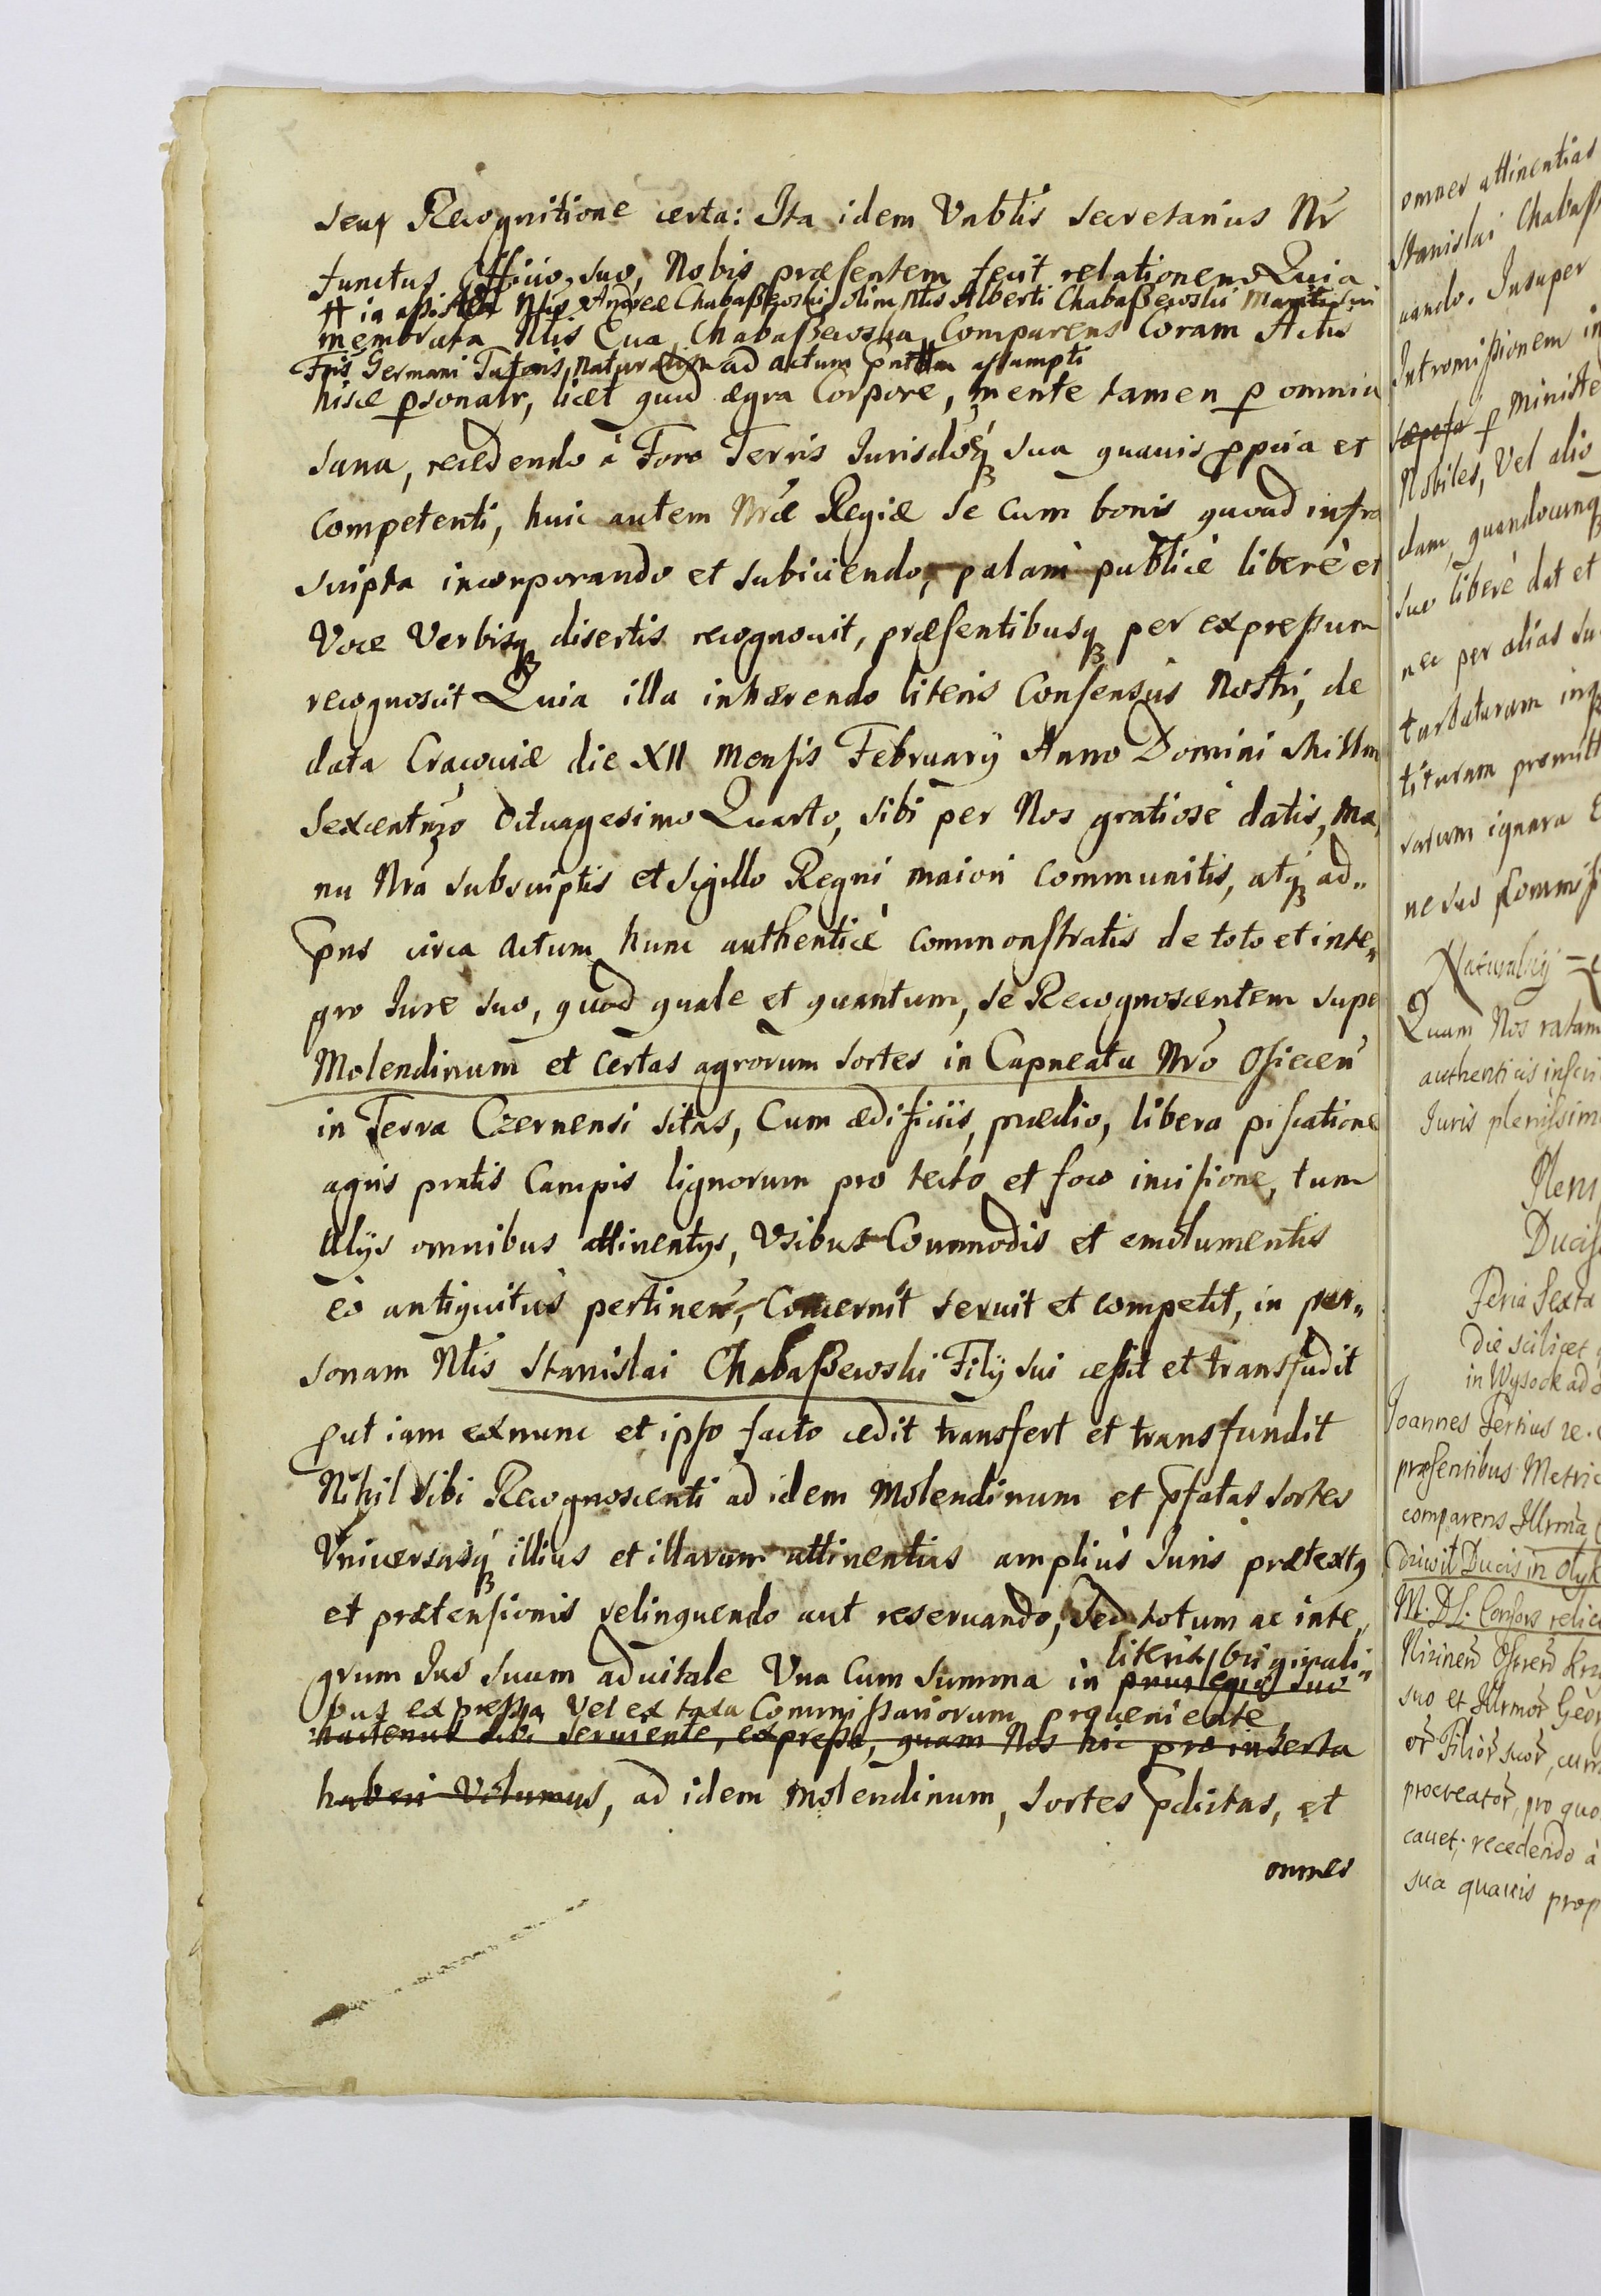 seu Recognitione certa: Ita idem Vnblis Secretarius Nr
functus Officio suo, Nobis præsentem fecit relationem Quia
in assis Nlis Andreæ Chabaßewski olim Nlis Alberti Chabaßewski Mariti sui
memorata Nlis Eua Chabaßewska Comparens Coram Actis
Fris Germani Tutoris, naturalis ad actum pntem assumpti
hisce psonalr, licet quid ægra Corpore, mente tamen p omnia
sana, recedendo à Foro Terris Jurisdoeq sua quauis ppria et
Competenti, huic autem Nræ Regiæ se Cum bonis quoad infra
scripta incorporando et subiiciendo, palam publicè liberè et
Voce Verbisq disertis recognouit, præsentibusq per expreßum
recognoscit Quia illa inhærendo literis Consensus Nostri, de
data Cracouiæ die XII Mensis February Anno Domini Millm
Sexcentmo Octuagesimo Quarto, sibi per Nos gratiosè datis, ma,
nu Nra subscriptis et sigillo Regni maiori Communitis, atq ad„
pns circa Actum hunc authenticè commonstratis de toto et inte„
gro Jure suo, quod quale et quantum, se Recognoscentem supe
Molendinum et certas agrorum sortes in Capneatu Nro Osiecen
in Terra Czernensi sitas, Cum ædificiis, prædio, libera piscatione
agris pratis Campis lignorum pro tecto et foco incisione, tum
Alijs omnibus attinentijs, Vsibus Commodis et emolumentis
eò antiquitùs pertinen, Concernit seruit et competit, in per„
sonam Nlis Stanislai Chabaßewski Filij sui ceßit et transfudit
put iam exnunc et ipso facto cedit transfert et transfundit
Nihil sibi Recognoscenti ad idem Molendinum et pfatas sortes
Vniuersasq illius et illarum attinentias ampliùs Juris prætextq
et prætensionis relinquendo aut reseruando, sed totum ac inte,
grum Jus suum aduitale Vna Cum summa in priuilegio suo
literis originali„
bus expreßa Vel ex taxa Commißariorum proueniente
hactenus sibi seruiente, expreßa, quam Nos hic pro inserta
haberi Volumus, ad idem Molendinum, sortes pdictas, et
omnes
omnes attinentias
Stanislai Chabaß
uando. Insuper
Intromißionem in
p Ministe
Nobiles, Vel alio
dam, quandocunq
suo liberè dat et
nec per alias su
turbaturam inq
tituram promitt
rarum ignara
ne sus Commiß
Naturalis
Quam Nos ratam
authenticis inscri
Juris plenissim
Plen
Ducis
Feria Sexta
die scilicet
in Wysock ad
Joannes Tertius re.
præsentibus Metric
comparens Illrma
dziwil Ducis in Olyk
M. D L. Consors relic
Nizinen Ostren Krz
suo et Illrmor Geor
or Filior suor, cum
procreator, pro quo
cauet; recedendo à
sua quauis prop